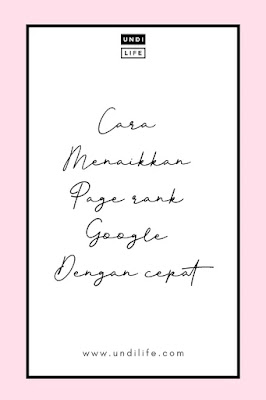 UNDI
LIFE
Cara
Menaikkan
Page rank
Google
Dengan cepat
www.undilife.com